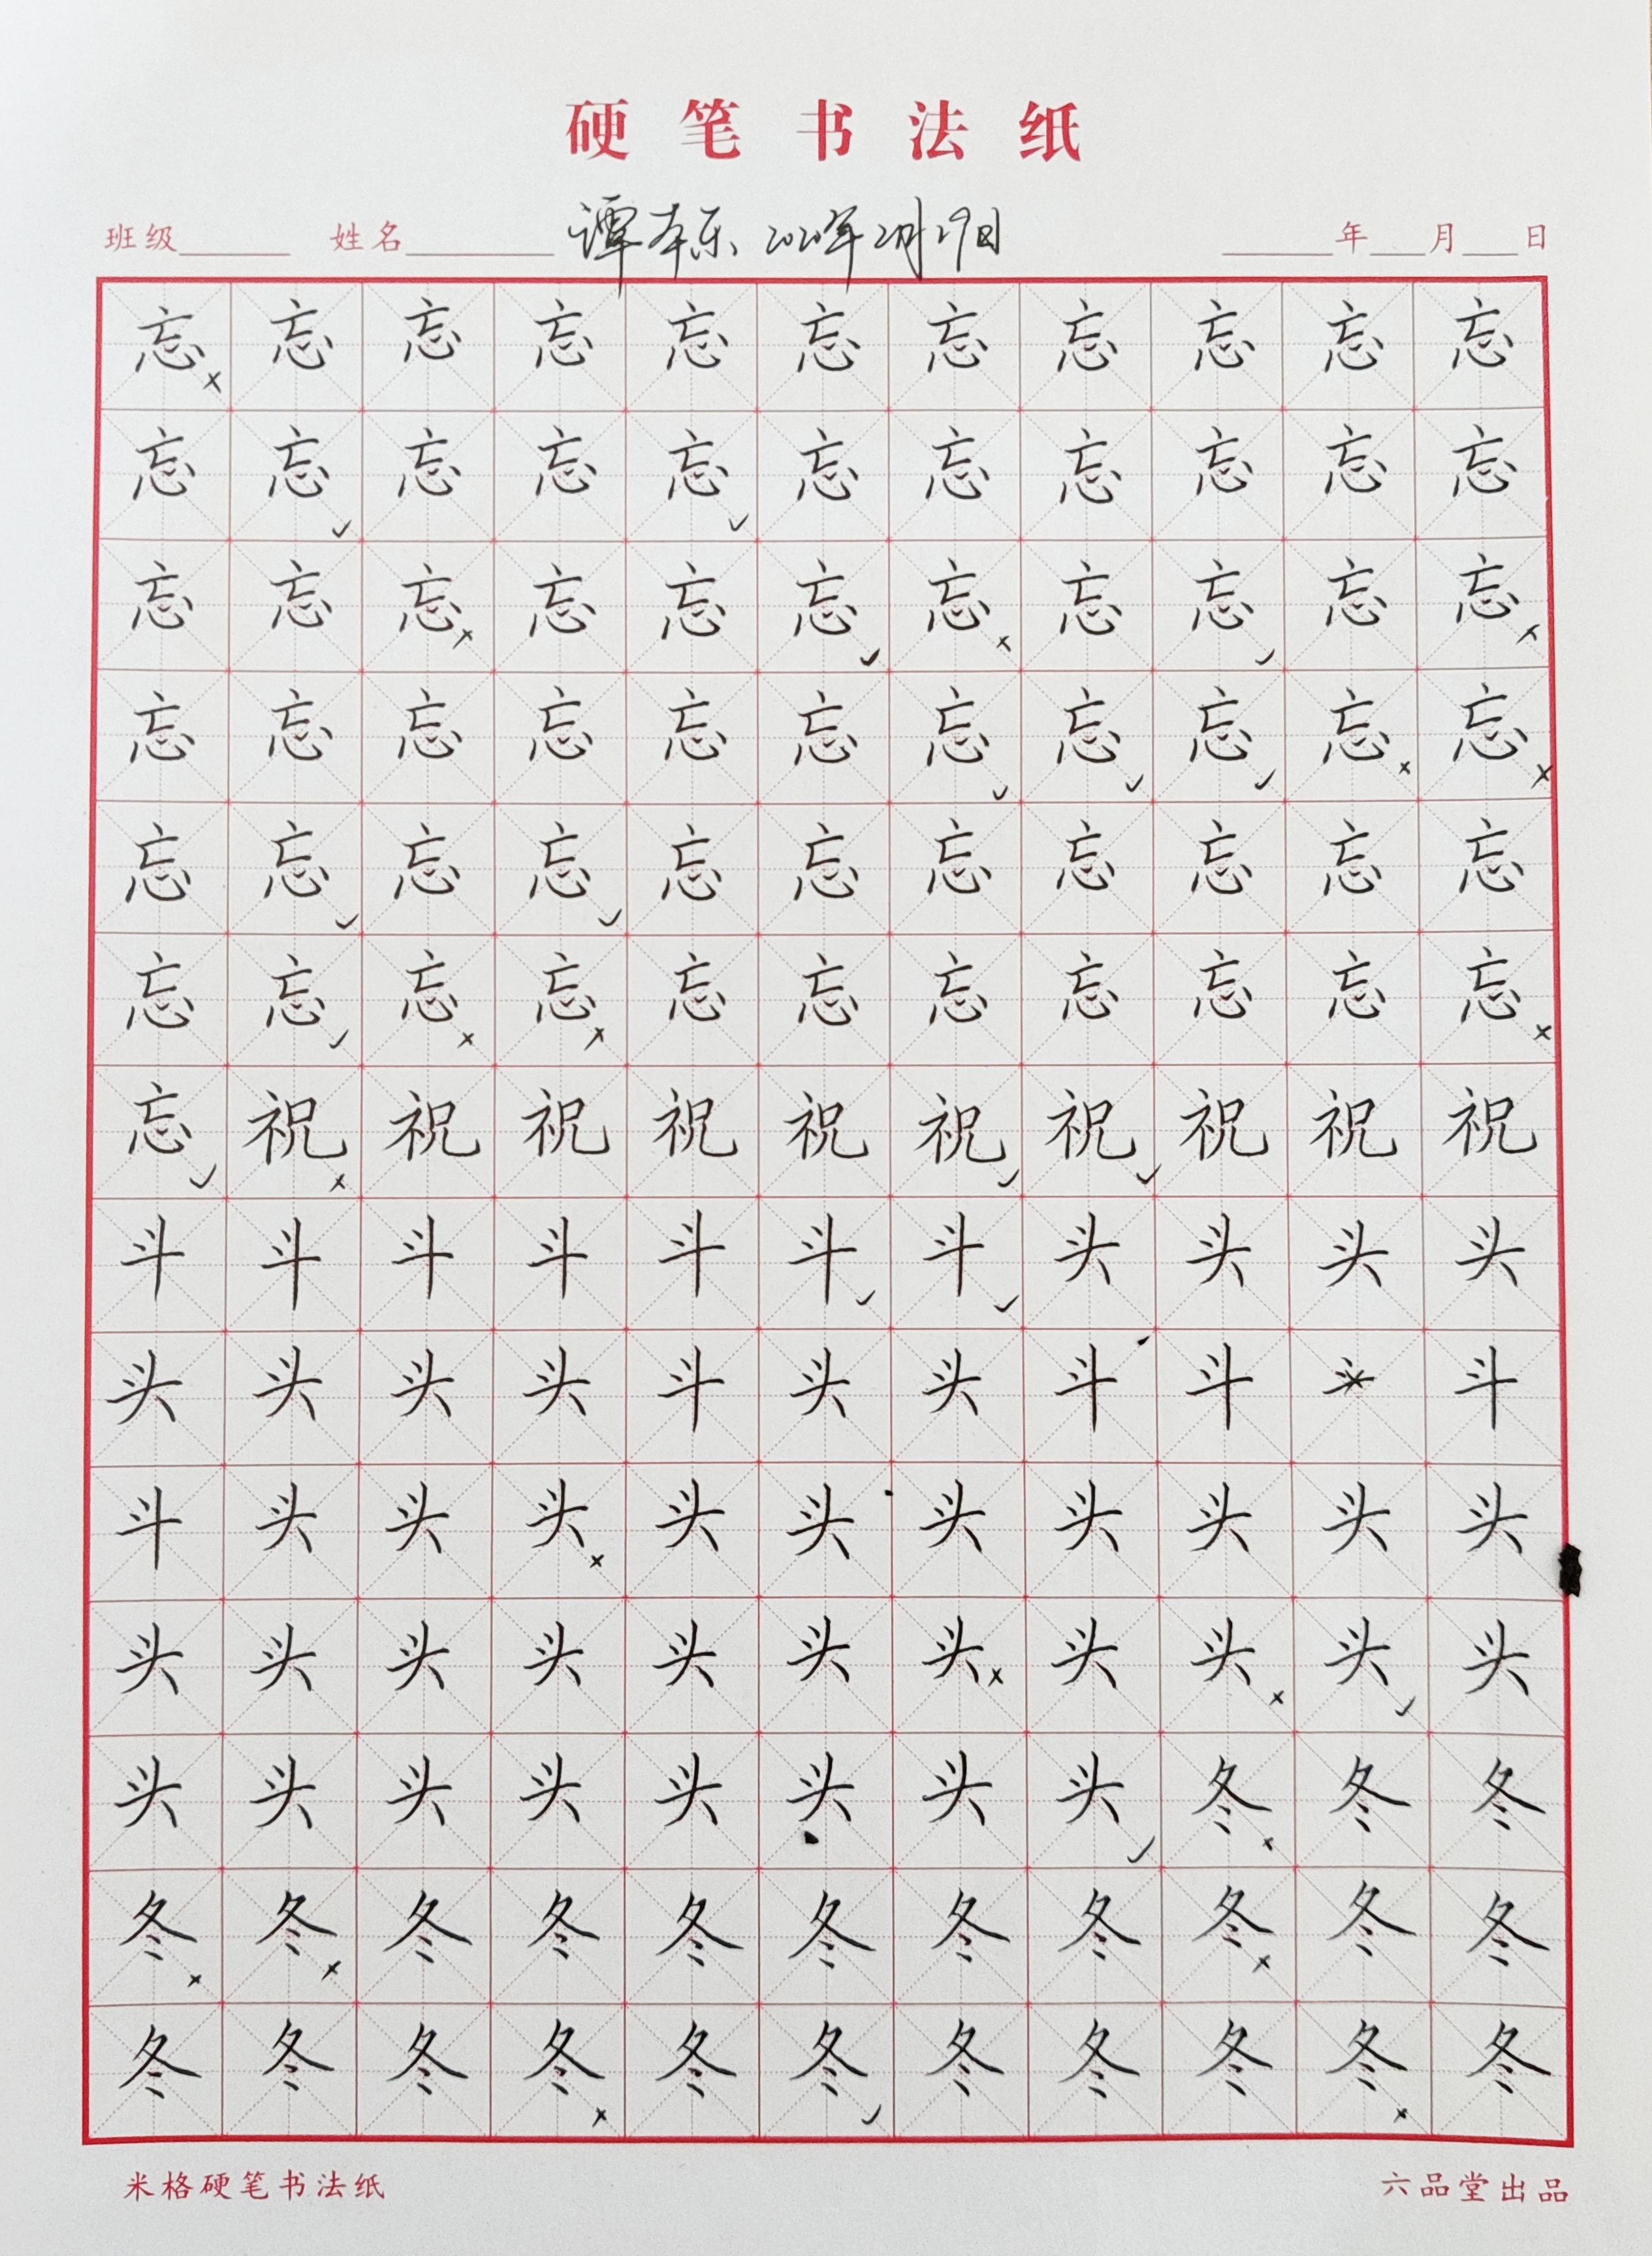 硬笔书法纸
班级 姓名 谭本东 2020年2月29日 年 月 日
忘忘忘忘忘忘忘忘忘忘忘
忘忘忘忘忘忘忘忘忘忘忘
忘忘忘忘忘忘忘忘忘忘忘
忘忘忘忘忘忘忘忘忘忘忘
忘忘忘忘忘忘忘忘忘忘忘
忘忘忘忘忘忘忘忘忘忘忘
忘祝祝祝祝祝祝祝祝祝祝
斗斗斗斗斗斗斗头头头头
头头头头斗头头斗斗斗
斗头头头头头头头头头头
头头头头头头头头头头头
头头头头头头头头冬冬冬
冬冬冬冬冬冬冬冬冬冬冬
冬冬冬冬冬冬冬冬冬冬冬
米格硬笔书法纸 六品堂出品